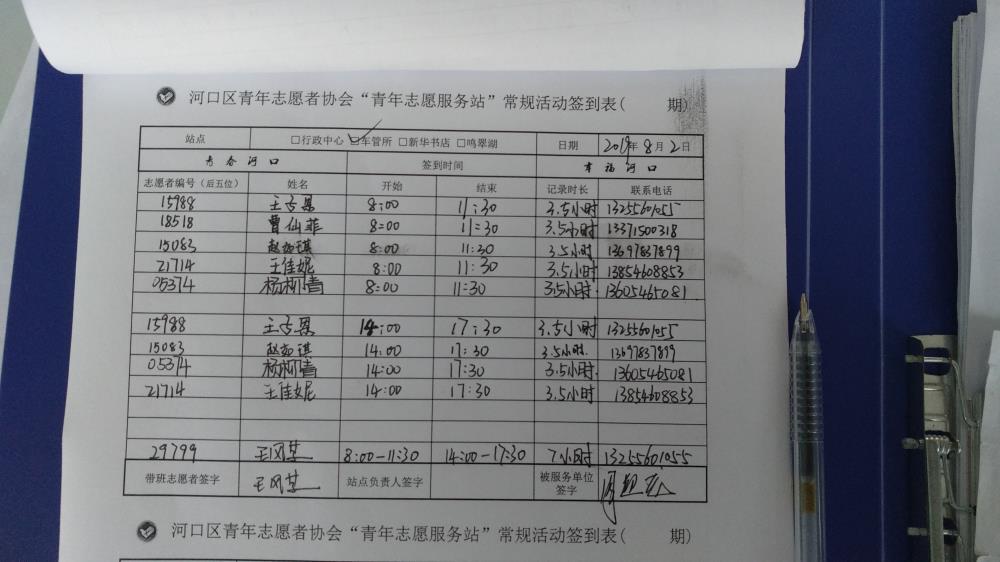 河口区青年志愿者协会“青年志愿服务站”常规活动签到表( 期)
站点 □行政中心 ☑车管所 □新华书店 □鸣翠湖 日期 2019年8月2日
青春河口 签到时间 幸福河口
志愿者编号（后五位） 姓名 开始 结束 记录时长 联系电话
15988 王 8:00 11:30 3.5小时 13255601055
18518 曹仙菲 8:00 11:30 3.5小时 13371500318
15083 赵如琪 8:00 11:30 3.5小时 13697837899
21714 王佳妮 8:00 11:30 3.5小时 13854608853
05374 杨柳青 8:00 11:30 3.5小时 13605465081
15988 王 14:00 17:30 3.5小时 13255601055
15083 赵如琪 14:00 17:30 3.5小时 13697837899
05374 杨柳青 14:00 17:30 3.5小时 13605465081
21714 王佳妮 14:00 17:30 3.5小时 13854608853
29799 王风 8:00-11:30 14:00-17:30 7小时 13255601055
带班志愿者签字 王风 站点负责人签字 被服务单位签字
河口区青年志愿者协会“青年志愿服务站”常规活动签到表( 期)